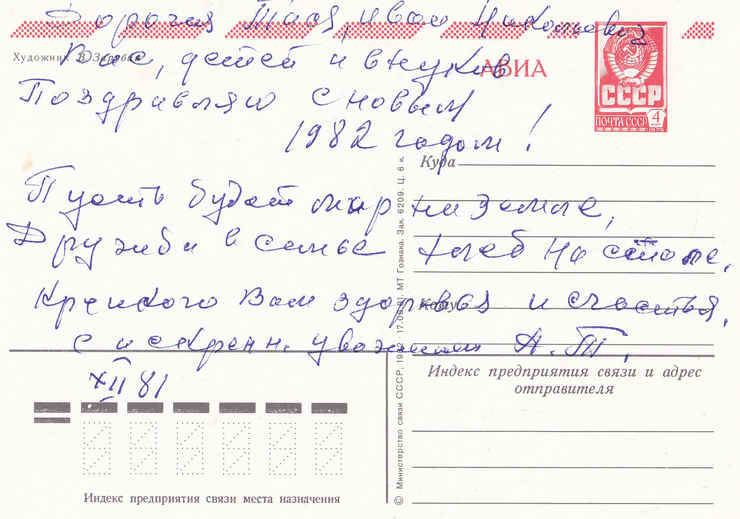 Дорогая Тася, Иван Николаевич
Художник В. Зарубин
Вас, детей и внуков
АВИА
СССР
ПОЧТА СССР 4
Поздравляю с новым
1982 годом!
Куда
Пусть будет мир на земле,
Дружба в семье хлеб на столе,
Кому
Крепкого Вам здоровья и счастья,
с искренн. уважением А. Т.
XII 81
Индекс предприятия связи и адрес
отправителя
Индекс предприятия связи места назначения
© Министерство связи СССР, МТ Гознака. Зак. 6209. Ц. 6 к.